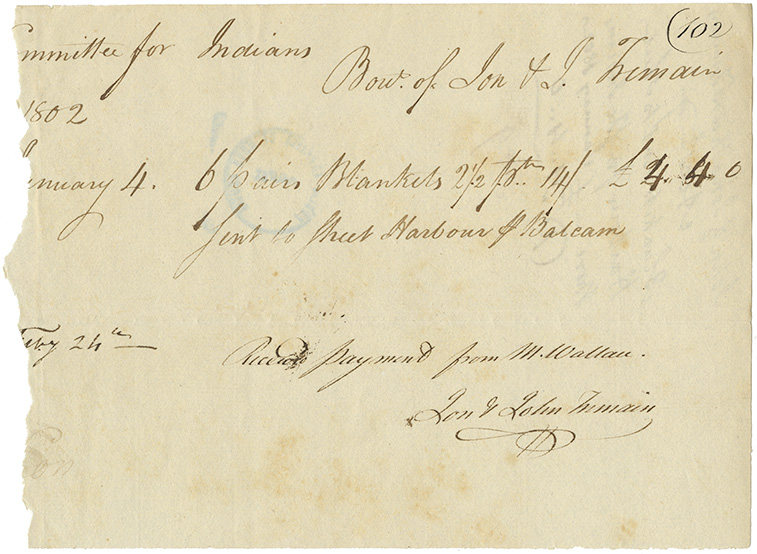 (102
ommittee for Indians
Bow. of Jon & J. Tremain
1802
anuary 4. 6 pairs Blankets 2 1/2 pth 14/. £ 4 4 0
Sent to Sheet Harbour p Balcam
Feby 24th
Receivd payment from M. Wallace.
Jon & John Tremain